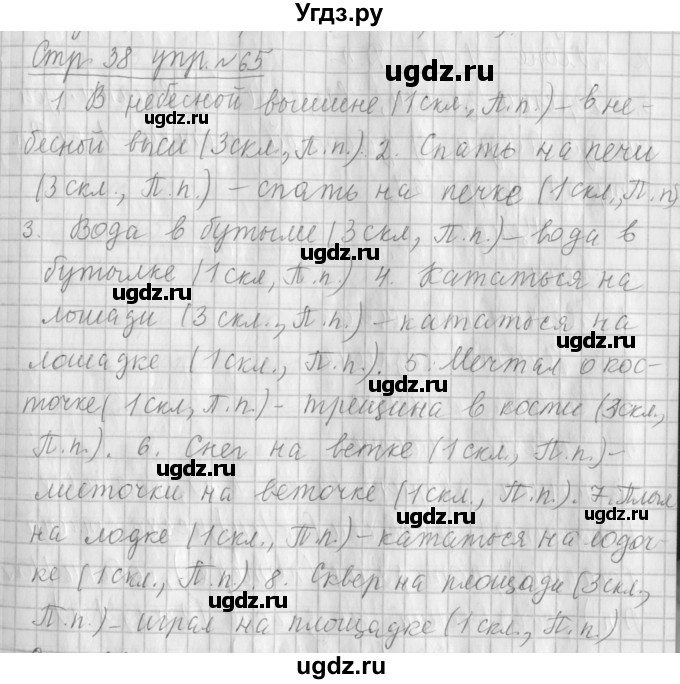 Угдз.ру
Стр 38 упр. №65
1 В небесной вышине (1 скл., П.п.) – в не-
бесной выси (3скл., П.п.). 2. Спать на печи
(3 скл., П.п.) – спать на печке (1 скл., П.п)
3. Вода в бутыли (3 скл, П.п.) – вода в
бутылке (1 скл, П.п) 4. Кататься на
лошади (3 скл., П.п.) – кататься на
лошадке (1 скл., П.п.). 5. Мечтал о кос-
точке (1 скл, П.п.) – трещина в кости (3скл,
П.п.). 6. Снег на ветке (1 скл., П.п.) –
листочки на веточке (1 скл., П.п.). 7. Плыл
на лодке (1 скл., П.п.) – кататься на лодоч-
ке (1 скл., П.п). 8. Сквер на площади (3 скл,
П.п.) – играл на площадке (1 скл., П.п.)
ugdz.ru
ugdz.ru
ugdz.ru
ugdz.ru
ugdz.ru
ugdz.ru
ugdz.ru
ugdz.ru
ugdz.ru
ugdz.ru
ugdz.ru
ugdz.ru